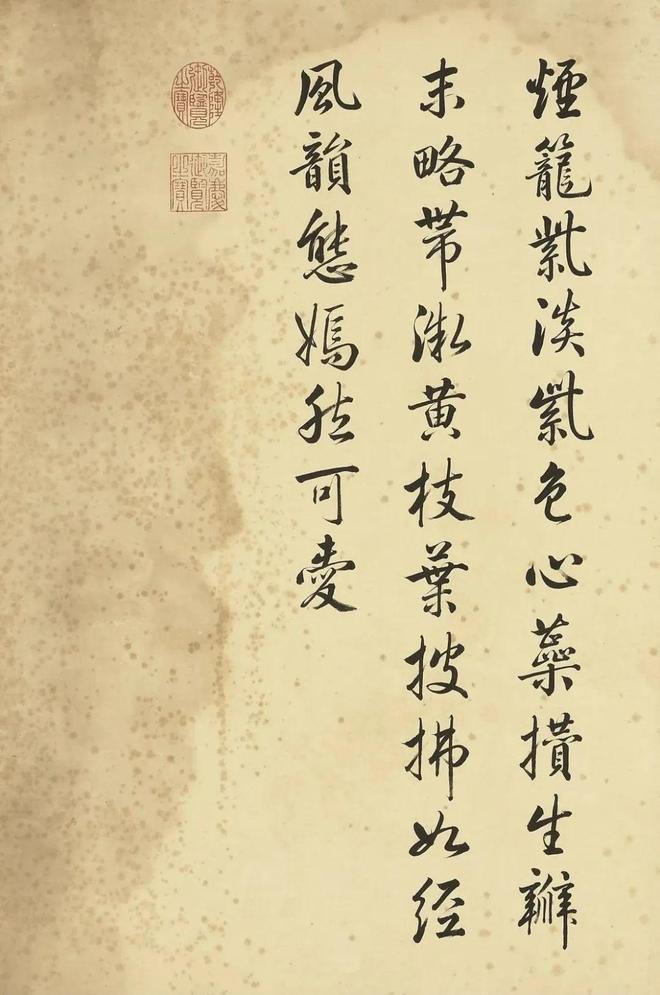 煙籠紫淡紫色心蘂攢生瓣
末略帶微黃枝葉披拂如經
風韻態嫣然可愛
乾隆御覽之寶
嘉慶御覽之寶